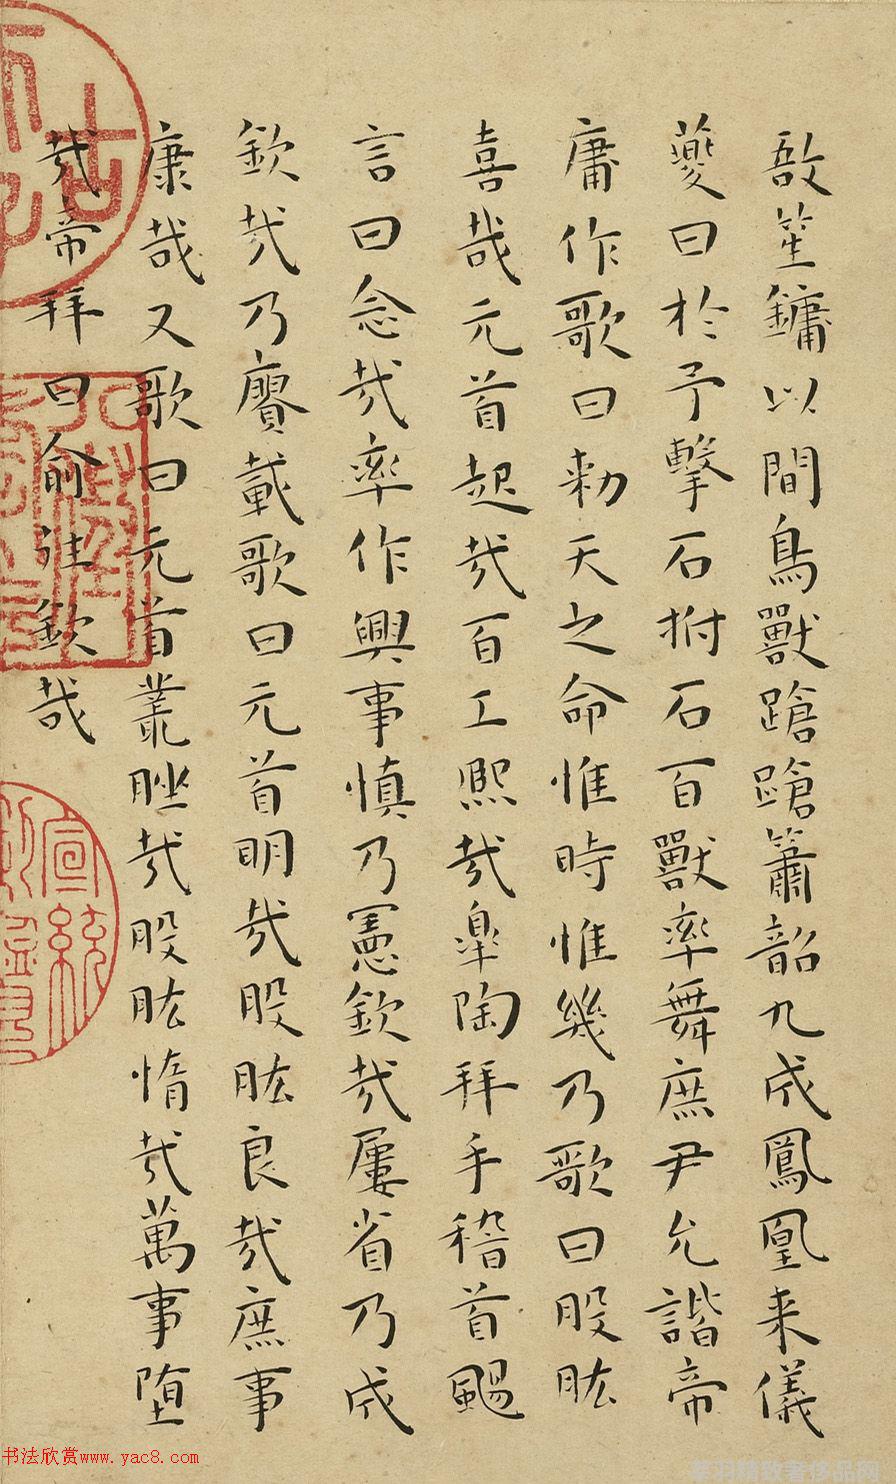 敔笙鏞以間鳥獸蹌蹌簫韶九成鳳凰来儀
夔曰於予擊石拊石百獸率舞庶尹允諧帝
庸作歌曰勑天之命惟時惟幾乃歌曰股肱
喜哉元首起哉百工熈哉皐陶拜手稽首颺
言曰念哉率作興事慎乃憲欽哉屢省乃成
欽哉乃賡載歌曰元首明哉股肱良哉庶事
康哉又歌曰元首叢脞哉股肱惰哉萬事堕
哉帝拜曰俞往欽哉
宣統
书法欣赏www.yac8.com